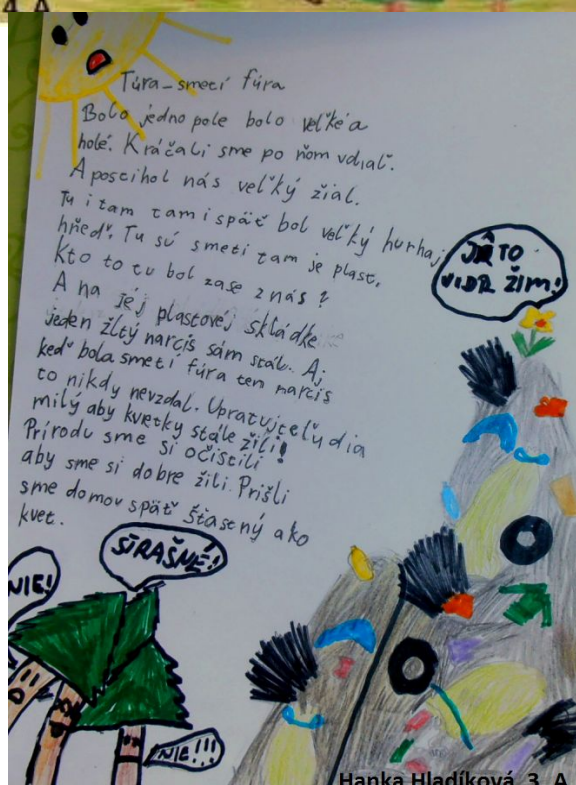 4 A
Túra-smetí fúra
Bolo jedno pole bolo veľké a
holé. Kráčali sme po ňom vdiaľ.
A postihol nás veľký žial.
Tu i tam tam i späť bol veľký hurhaj
hneď. Tu sú smeti tam je plast,
Kto to tu bol zase z nás?
A na jej plastovej skládke
jeden žltý narcis sám stál. Aj
keď bola smetí fúra ten narcis
to nikdy nevzdal. Upratujte ľudia
milý aby kvetky stále žili!
Prírodu sme si očistili
aby sme si dobre žili. Prišli
sme domov späť šťastný ako
kvet.
JA TO
VIDRŽIM!
STRAŠNÉ!
NIE!
NIE!!!
Hanka Hladíková, 3. A